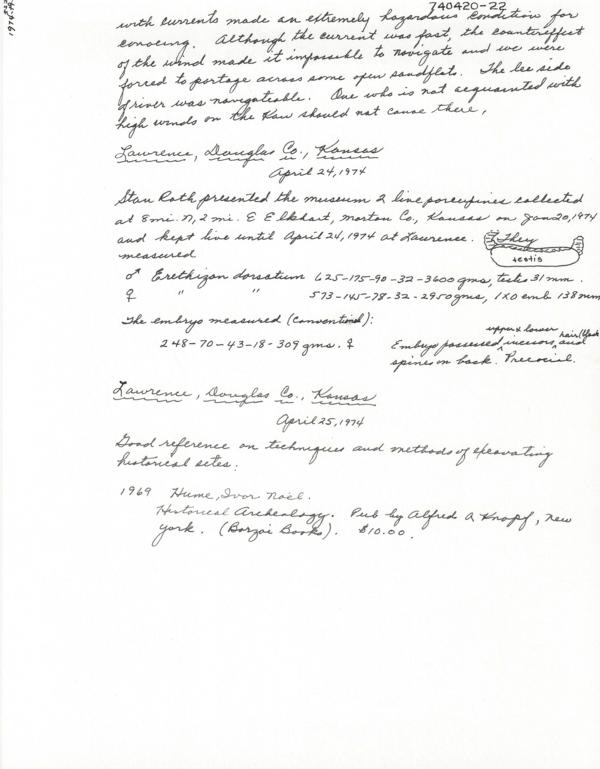 740420-22
with currents made an extremely hazardous condition for
canoeing. Although the current was fast, the countereffect
of the wind made it impossible to navigate and we were
forced to portage across some open sandflats. The lee side
of river was navigateable. One who is not acquainted with
high winds on the Kaw should not canoe there.
Lawrence, Douglas Co., Kansas
April 24, 1974
Stan Roth presented the museum 2 live porcupines collected
at 8 mi. N, 2 mi. E Elkhart, Morton Co., Kansas on Jan 20, 1974
and kept live until April 24, 1974 at Lawrence. They
measured
testis
♂ Erethizon dorsatum 625-175-90-32-3600 gms, testis 31 mm.
♀ " " 573-145-78-32-2950 gms, 1X0 emb 138 mm
The embryo measured (conventional):
248-70-43-18-309 gms. ♀ Embryo possessed upper & lower incisors, hair (black) and
spines on back. Precocial.
Lawrence, Douglas Co., Kansas
April 25, 1974
Good reference on techniques and methods of excavating
historical sites.
1969 Hume, Ivor Noël.
Historical Archeology. Pub by Alfred A Knopf, New
York. (Borzoi Books). $10.00.